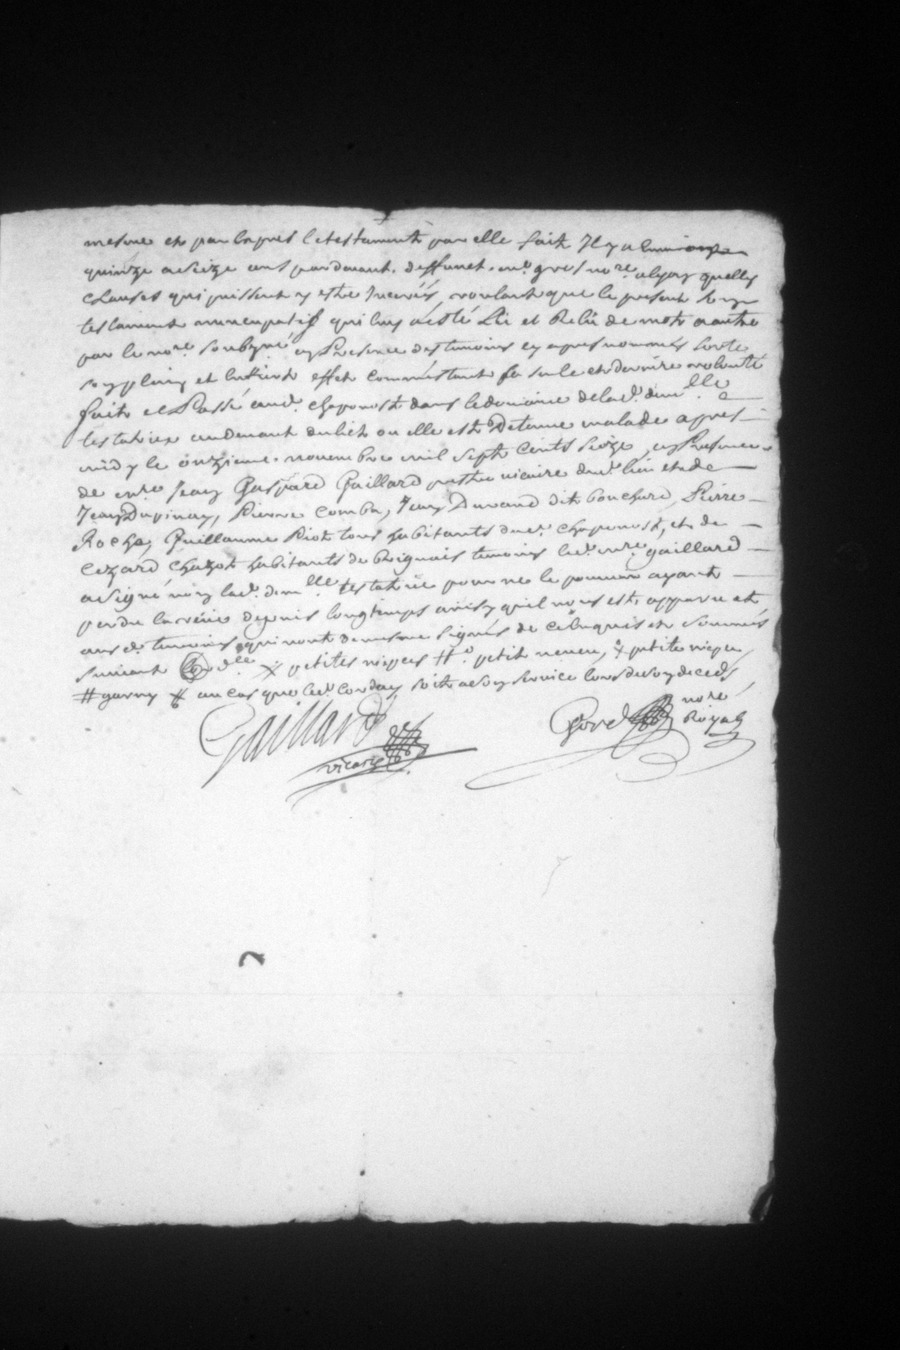 mesme et par exprès le testament par elle fait Il y a environ
quinze a seize ans pardevant deffunct me gros nore quelles
clauses qui puissent y estre Inserés, voulant que le present soy
testament nuncupatif qui luy a esté Lü et Relü de mot a autre
par le nore soubzné en Presence des temoins cy apres nommés sorte
soy plein et entier effet comme estant sa seule et derniere volonté
fait et Passé aud. chaponost dans le domaine de lad. demlle
testatrice au devant du lict ou elle est Detenue malade apres
midy le onzieme novembre mil sept cents seize, en Presence
de mre Jean Gaspard Gaillard prestre vicaire dud. lieu et de
Jean Dupinay, Pierre Comba, Jean Durand dit bouchard, Pierre
Rocha, Guillaume Piot tous habitants dud. chaponost, et de
Cezard Chazot habitants de Brignais temoins led. mre gaillard
a signé n'oy lad. demlle testatrice pour ne le pouvoir ayant
perdu la veüe depuis longtemps ainsy qu'il nous est apparu et
aus d. temoins qui n'ont de mesme signés de ce enquis et sommés
suivant petites nieces # petit neveu, petite niepce
# garny au cas que led. Corday soit a soy service lors de soy deceds
Gaillard
vicaire
nore
Royal